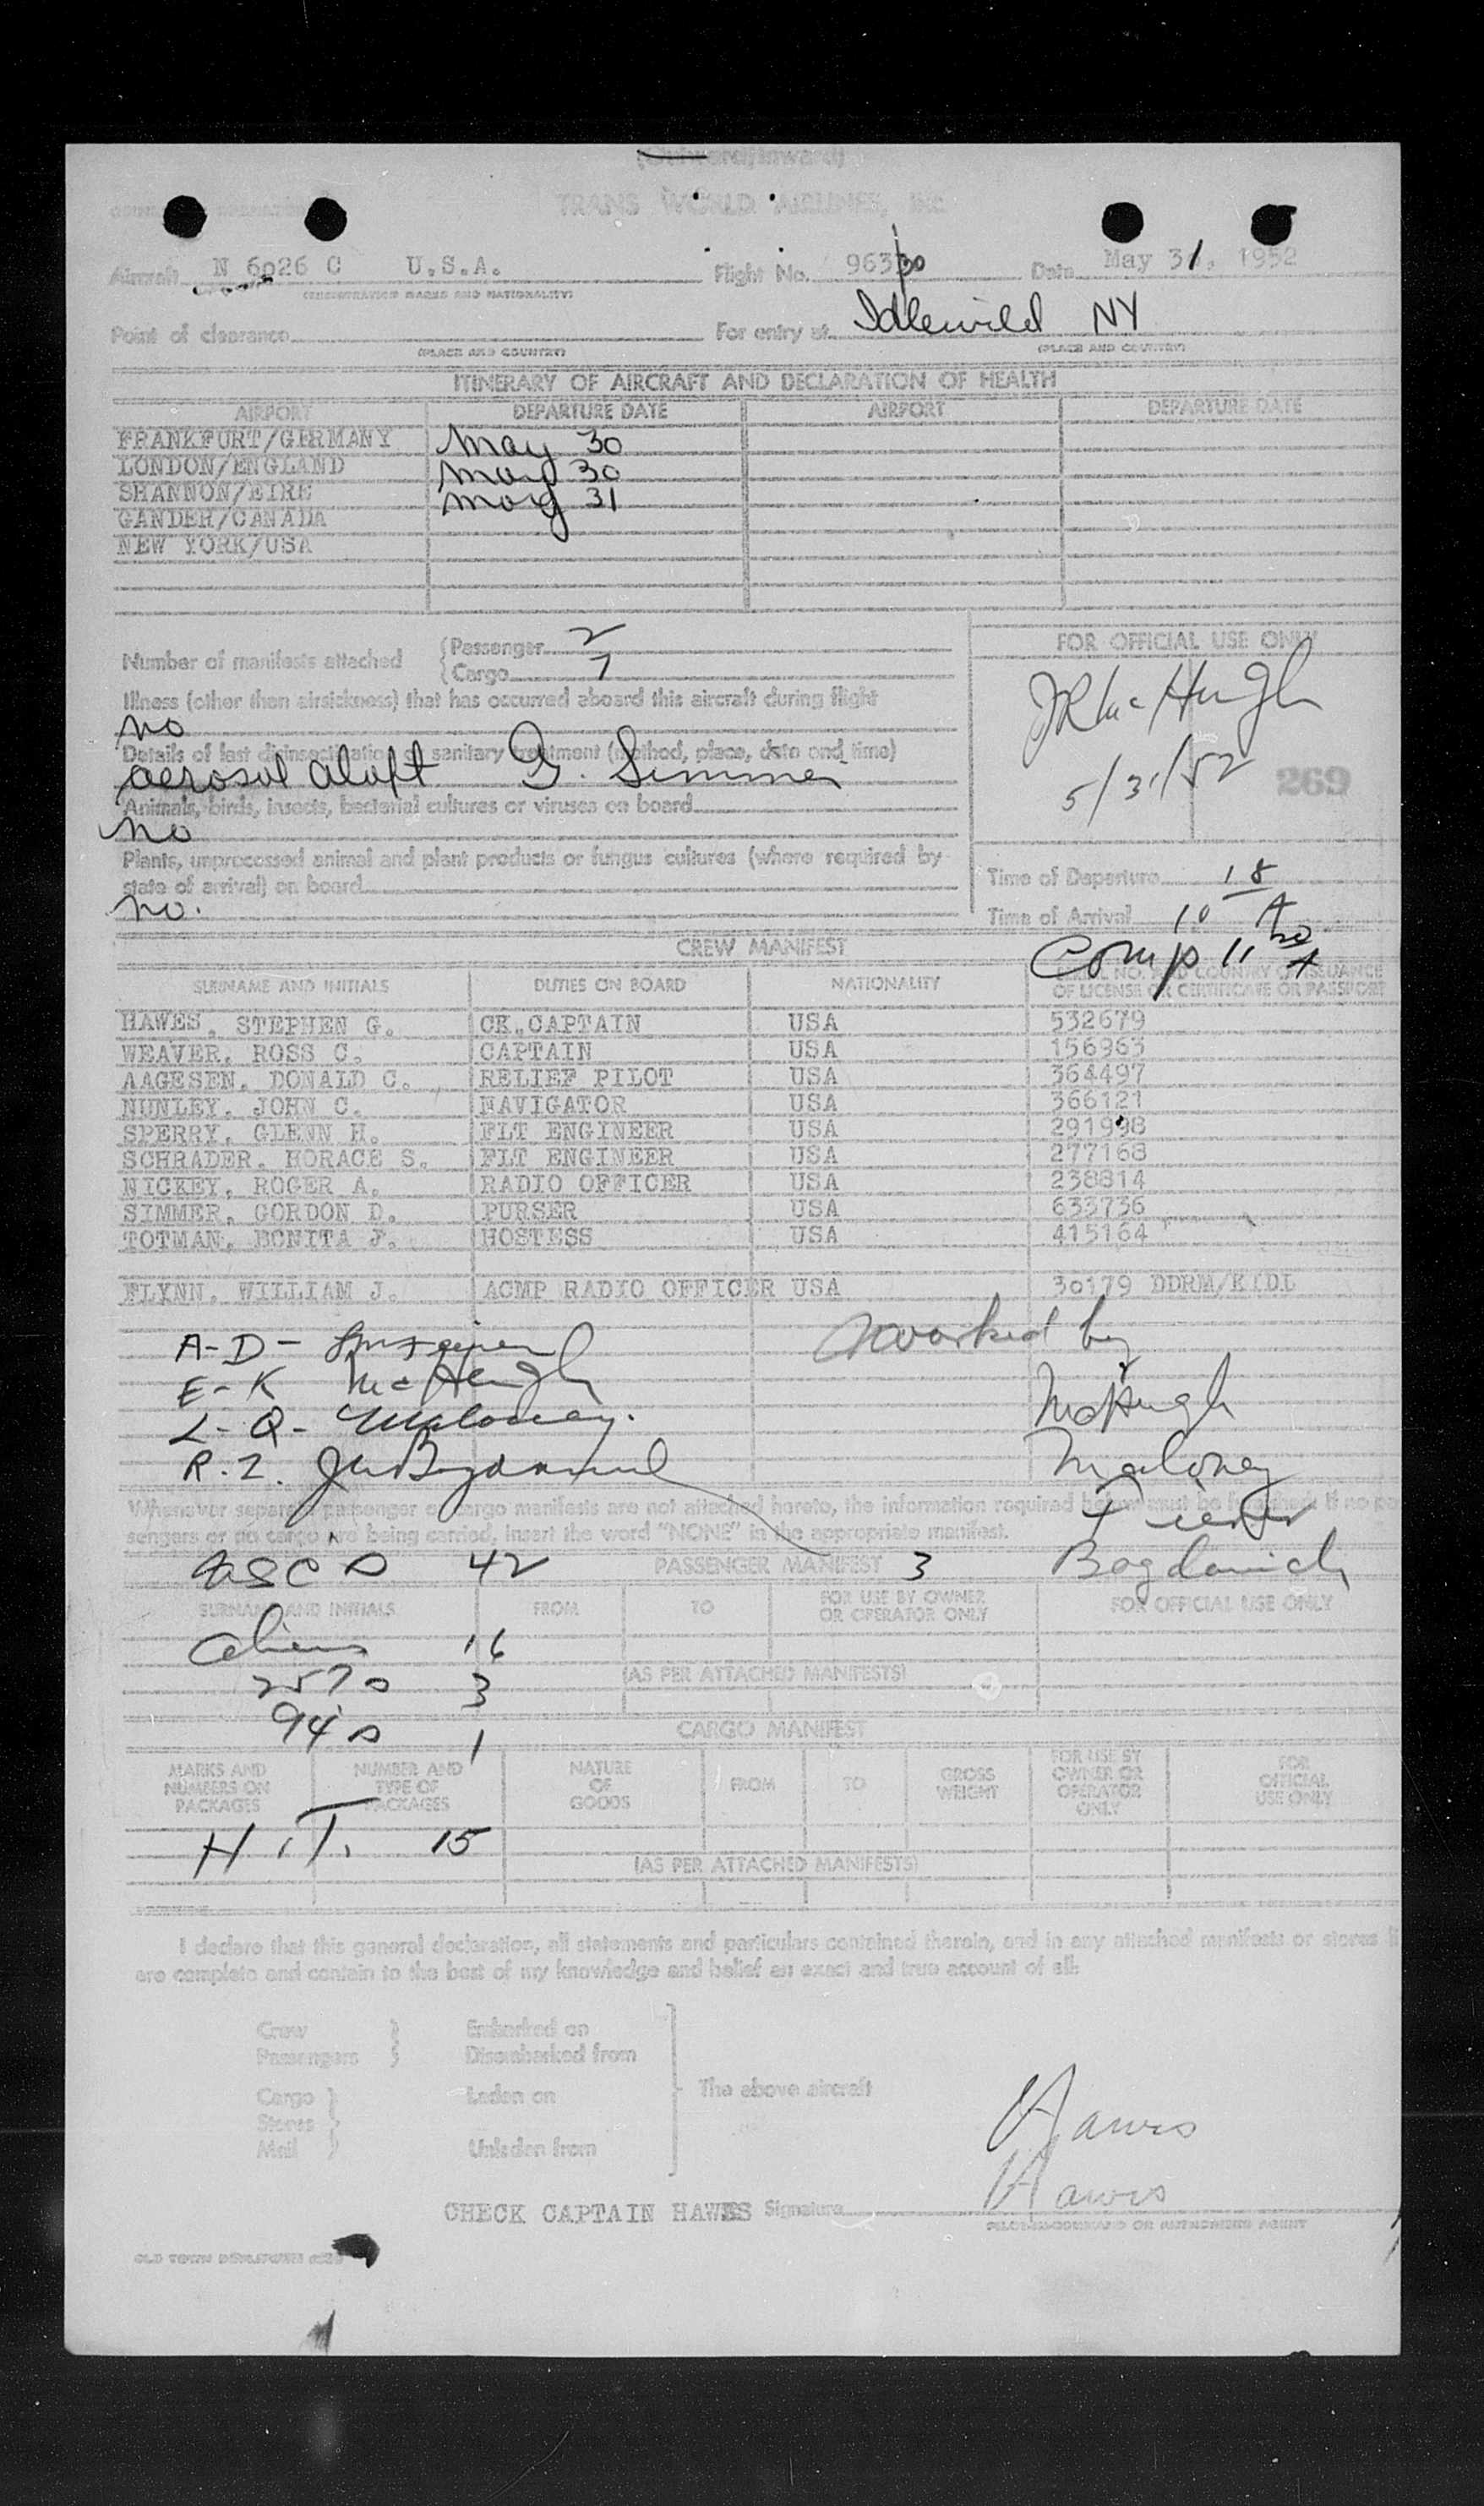 (Outward/Inward)
TRANS WORLD AIRLINES, INC
Aircraft N 6026 C U.S.A. Flight No. 963/30 Date May 31, 1952
(REGISTRATION MARKS AND NATIONALITY)
Point of clearance For entry at Idlewild NY
(PLACE AND COUNTRY) (PLACE AND COUNTRY)
ITINERARY OF AIRCRAFT AND DECLARATION OF HEALTH
AIRPORT DEPARTURE DATE AIRPORT DEPARTURE DATE
FRANKFURT/GERMANY May 30
LONDON/ENGLAND May 30
SHANNON/EIRE May 31
GANDER/CANADA
NEW YORK/USA
Number of manifests attached {Passenger 2
{Cargo 7
FOR OFFICIAL USE ONLY
Illness (other than airsickness) that has occurred aboard this aircraft during flight
no
JR McHugh
Details of last disinsectization or sanitary treatment (method, place, date and time)
aerosol aloft G. Simmer
5/31/52 269
Animals, birds, insects, bacterial cultures or viruses on board
no
Plants, unprocessed animal and plant products or fungus cultures (where required by
state of arrival) on board
no.
Time of Departure 18
Time of Arrival 10 A
Comp 11 20 A
CREW MANIFEST
SURNAME AND INITIALS DUTIES ON BOARD NATIONALITY SERIAL NO. AND COUNTRY OF ISSUANCE
OF LICENSE OR CERTIFICATE OR PASSPORT
HAWES, STEPHEN G. CK.CAPTAIN USA 532679
WEAVER, ROSS C. CAPTAIN USA 156963
AAGESEN, DONALD C. RELIEF PILOT USA 364497
NUNLEY, JOHN C. NAVIGATOR USA 366121
SPERRY, GLENN H. FLT ENGINEER USA 291998
SCHRADER, HORACE S. FLT ENGINEER USA 277168
NICKEY, ROGER A. RADIO OFFICER USA 238814
SIMMER, GORDON D. PURSER USA 633736
TOTMAN, BONITA J. HOSTESS USA 415164
FLYNN, WILLIAM J. ACMP RADIO OFFICER USA 30179 DDRM/EIDL
A-D-
Worked by
E-K McHugh
McHugh
L-Q- Maloney.
R-Z.
Maloney
Whenever separate passenger or cargo manifests are not attached hereto, the information required below must be furnished. If no pas
sengers or no cargo are being carried, insert the word "NONE" in the appropriate manifest.
USC's 42 PASSENGER MANIFEST 3 Bogdanich
SURNAME AND INITIALS FROM TO FOR USE BY OWNER
OR OPERATOR ONLY FOR OFFICIAL USE ONLY
Aliens 16
257s 3 (AS PER ATTACHED MANIFESTS)
94's 1 CARGO MANIFEST
MARKS AND
NUMBERS ON
PACKAGES NUMBER AND
TYPE OF
PACKAGES NATURE
OF
GOODS FROM TO GROSS
WEIGHT FOR USE BY
OWNER OR
OPERATOR
ONLY FOR
OFFICIAL
USE ONLY
H.T. 15
(AS PER ATTACHED MANIFESTS)
I declare that this general declaration, all statements and particulars contained therein, and in any attached manifests or stores li
are complete and contain to the best of my knowledge and belief an exact and true account of all:
Crew } Embarked on
Passengers } Disembarked from
Cargo } Laden on } The above aircraft
Stores }
Mail } Unladen from
Hawes
Hawes
CHECK CAPTAIN HAWES Signature
PILOT-IN-COMMAND OR AUTHORIZED AGENT